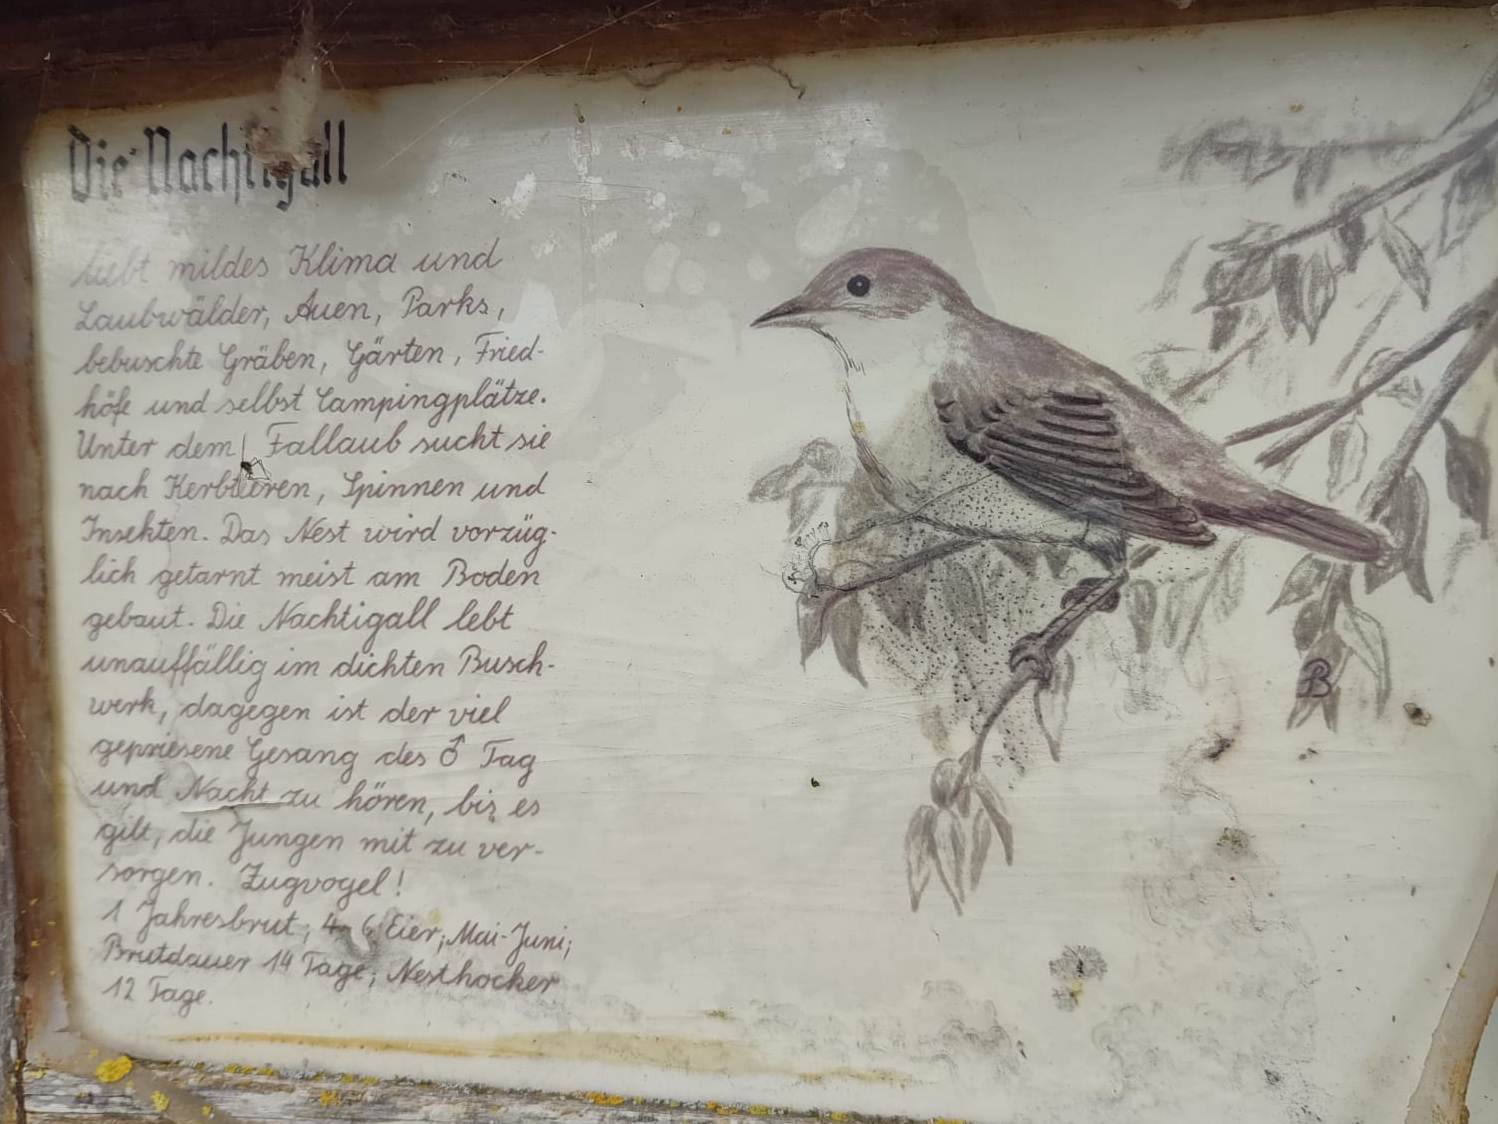 Die Nachtigall
liebt mildes Klima und
Laubwälder, Auen, Parks,
bebuschte Gräben, Gärten, Fried-
höfe und selbst Campingplätze.
Unter dem Fallaub sucht sie
nach Kerbtieren, Spinnen und
Insekten. Das Nest wird vorzüg-
lich getarnt meist am Boden
gebaut. Die Nachtigall lebt
unauffällig im dichten Busch-
werk, dagegen ist der viel
gepriesene Gesang des ♂ Tag
und Nacht zu hören, bis es
gilt, die Jungen mit zu ver-
sorgen. Zugvogel!
1 Jahresbrut; 4-6 Eier; Mai-Juni;
Brutdauer 14 Tage; Nesthocker
12 Tage.
B